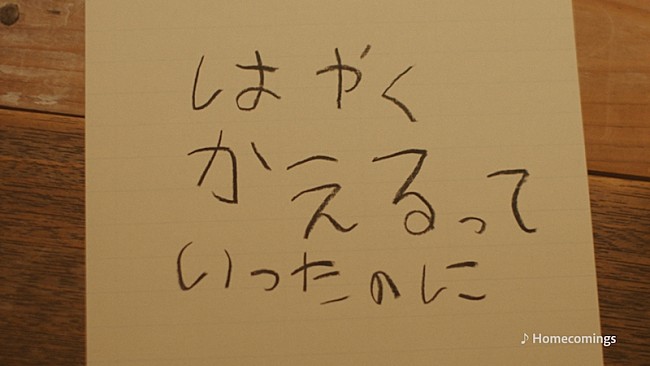 はやく
かえるって
いったのに
♪ Homecomings